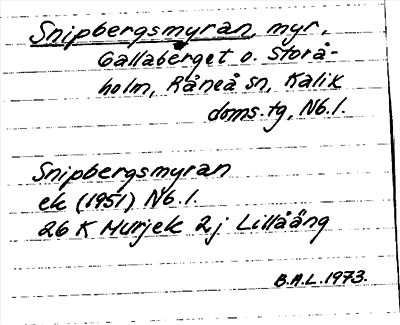 Snipbergsmyran, myr,
Gallaberget o. Storå-
holm, Råneå sn, Kalix
doms.tg, Nb.l.
Snipbergsmyran
ek (1951) Nb.l.
26 K Murjek 2j Lillåäng
B.A.L. 1973.